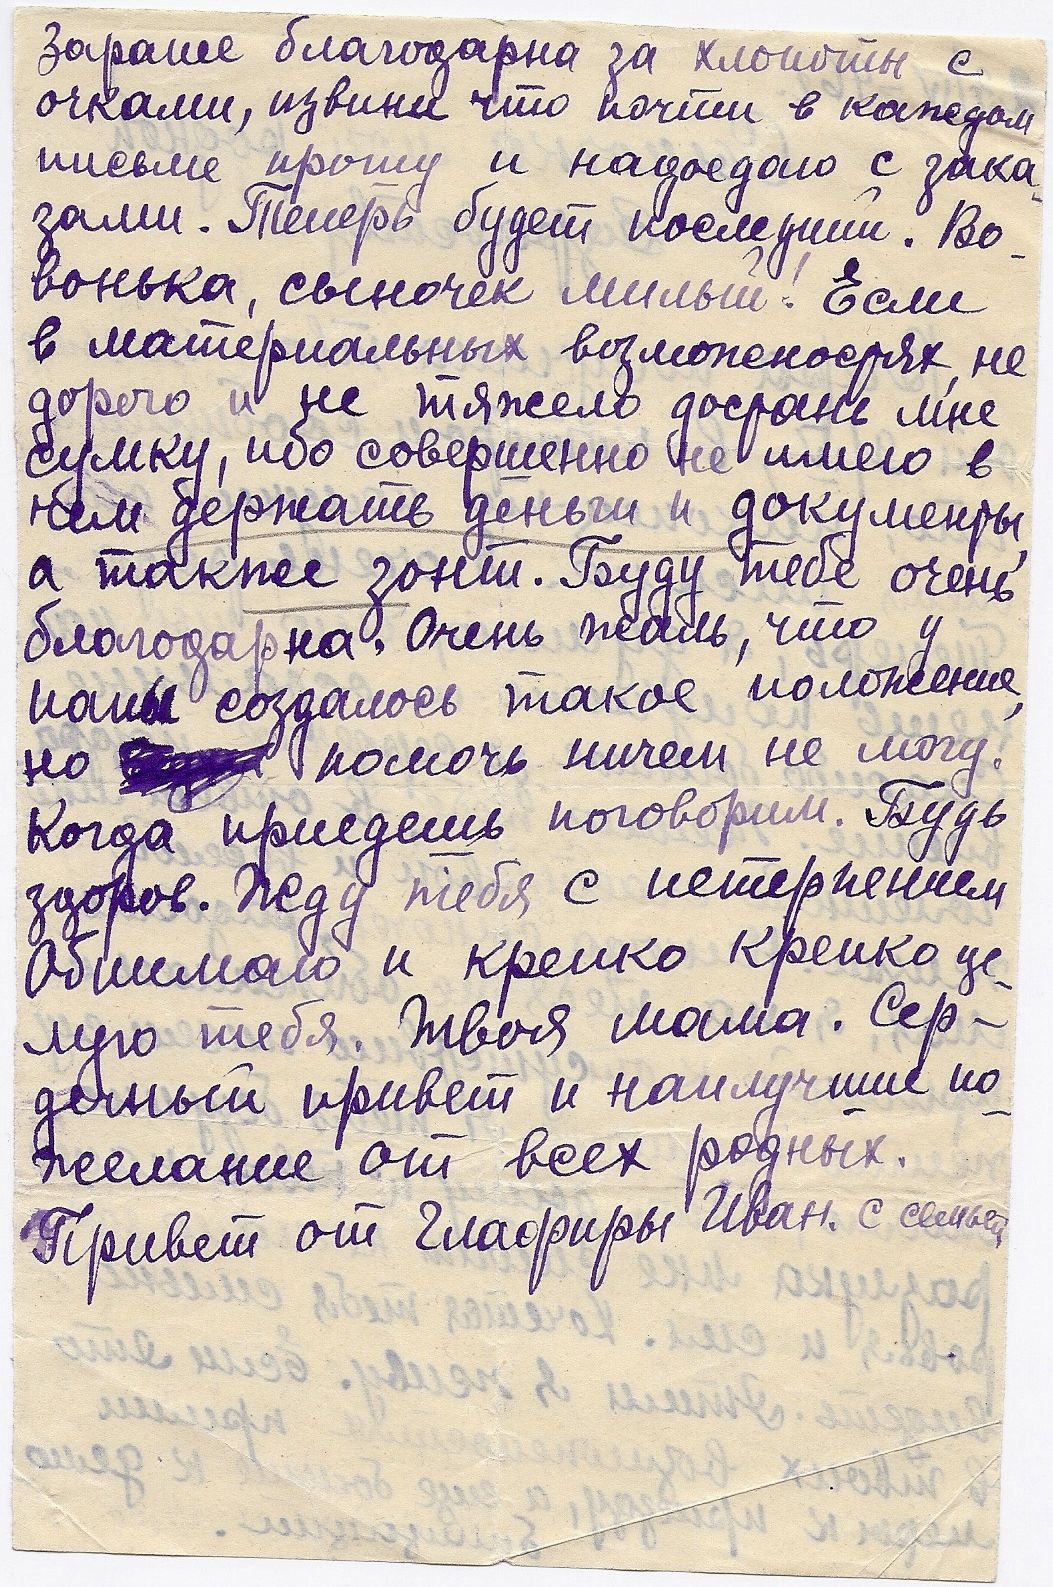 Зараше благодарна за хлопоты с
очками, извини что почти в каждом
письме прошу и надоедаю с зака-
зами. Теперь будет последний. Во-
вонька, сыночек милый! Если
в материальных возможностях, не
дорого и не тяжело достань мне
сумку, ибо совершенно не имею в
чем держать деньги и документы,
а также зонт. Буду тебе очень
благодарна. Очень жаль, что у
папы создалось такое положение,
но помочь ничем не могу.
Когда приедешь поговорим. Будь
здоров. Жду тебя с нетерпением
Обнимаю и крепко крепко це-
лую тебя. Твоя мама. Сер-
дечный привет и наилучшие по-
желание от всех родных.
Привет от Глафиры Иван. с семьей